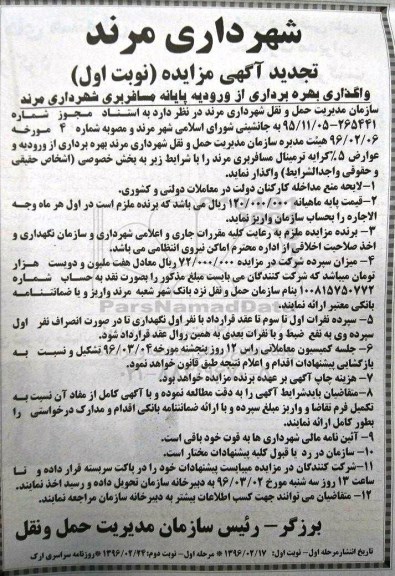 شهرداری مرند
تجدید آگهی مزایده (نوبت اول)
واگذاری بهره برداری از ورودیه پایانه مسافربری شهرداری مرند
سازمان مدیریت حمل و نقل شهرداری مرند در نظر دارد به استناد مجوز شماره
۹۵/۱۱/۰۵-۲۶۵۴۴۱ به جانشینی شورای اسلامی شهر مرند و مصوبه شماره ۴ مورخه
۹۶/۰۲/۰۶ هیئت مدیره سازمان مدیریت حمل و نقل شهرداری مرند بهره برداری از ورودیه و
عوارض ۵٪کرایه ترمینال مسافربری مرند را با شرایط زیر به بخش خصوصی (اشخاص حقیقی
و حقوقی واجدالشرایط) واگذار نماید.
۱-لایحه منع مداخله کارکنان دولت در معاملات دولتی و کشوری.
۲-قیمت پایه ماهیانه ۱۲۰/۰۰۰/۰۰۰ ریال می باشد که برنده ملزم است در اول هر ماه وجه
الاجاره را بحساب سازمان واریز نماید.
۳- برنده مزایده ملزم به رعایت کلیه مقررات جاری و اعلامی شهرداری و سازمان نگهداری و
اخذ صلاحیت اخلاقی از اداره محترم اماکن نیروی انتظامی می باشد.
۴- میزان سپرده شرکت در مزایده ۷۲/۰۰۰/۰۰۰ ریال معادل هفت ملیون و دویست هزار
تومان میباشد که شرکت کنندگان می بایست مبلغ مذکور را بصورت نقد به حساب شماره
۱۰۰۸۱۵۷۵۰۷۷۲ بنام سازمان حمل و نقل نزد بانک شهر شعبه مرند واریز و یا ضمانتنامه
بانکی معتبر ارائه نمایند.
۵- سپرده نفرات اول تا سوم تا عقد قرارداد با نفر اول نگهداری تا در صورت انصراف نفر اول
سپرده وی به نفع ضبط و با نفرات بعدی به همین روال عقد قرارداد شود.
۶- جلسه کمیسیون معاملاتی راس ۱۲ روز پنجشنبه مورخه ۹۶/۰۳/۰۴ تشکیل و نسبت به
بازگشایی پیشنهادات اقدام و اعلام نتیجه طبق قانون خواهد نمود.
۷- هزینه چاپ آگهی بر عهده برنده مزایده خواهد بود.
۸-متقاضیان بایدشرایط آگهی را به دقت مطالعه نموده و با آگهی کامل از مفاد آن نسبت به
تکمیل فرم تقاضا و واریز مبلغ سپرده و با ارائه ضمانتنامه بانکی اقدام و مدارک درخواستی را
بطور کامل ارائه نمایند.
۹- آئین نامه مالی شهرداری ها به قوت خود باقی است.
۱۰- سازمان در رد یا قبول کلیه پیشنهادات مختار است.
۱۱-شرکت کنندگان در مزایده میبایست پیشنهادات خود را در پاکت سربسته قرار داده و تا
ساعت ۱۳ روز سه شنبه مورخ ۹۶/۰۳/۰۲ به دبیرخانه سازمان تحویل داده و رسید اخذ نمایند.
۱۲- متقاضیان می توانند جهت کسب اطلاعات بیشتر به دبیرخانه سازمان مراجعه نمایند.
برزگر- رئیس سازمان مدیریت حمل ونقل
تاریخ انتشارمرحله اول- نوبت اول: ۱۳۹۶/۰۲/۱۷ * مرحله اول- نوبت دوم:۱۳۹۶/۰۲/۲۴ *روزنامه سراسری ارک